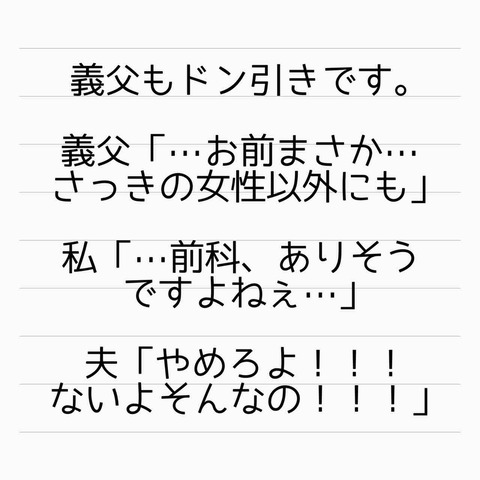 義父もドン引きです。
義父「…お前まさか…
さっきの女性以外にも」
私「…前科、ありそう
ですよねぇ…」
夫「やめろよ！！！
ないよそんなの！！！」